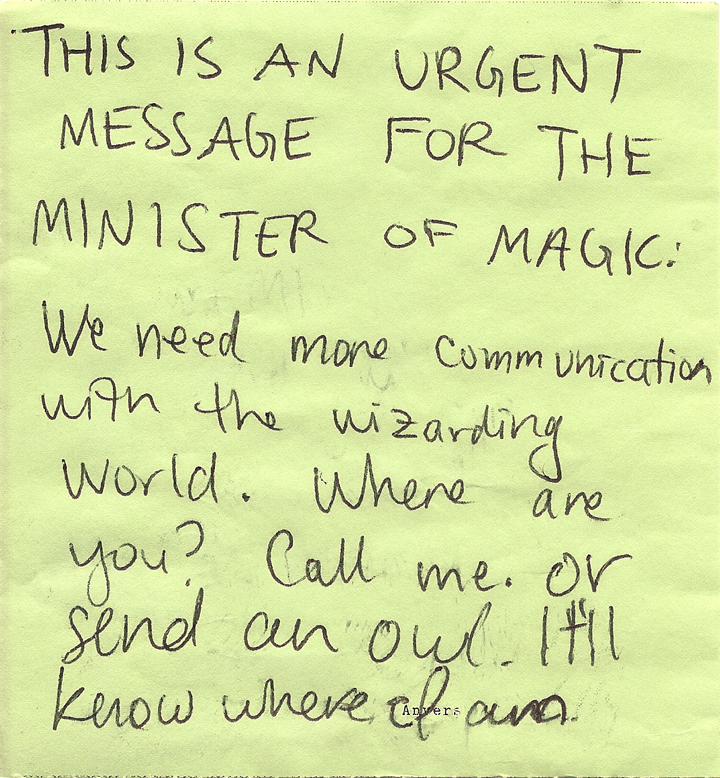 THIS IS AN URGENT
MESSAGE FOR THE
MINISTER OF MAGIC:
We need more communication
with the wizarding
world. Where are
you? Call me. or
send an owl. It'll
know where I am.
Anvers